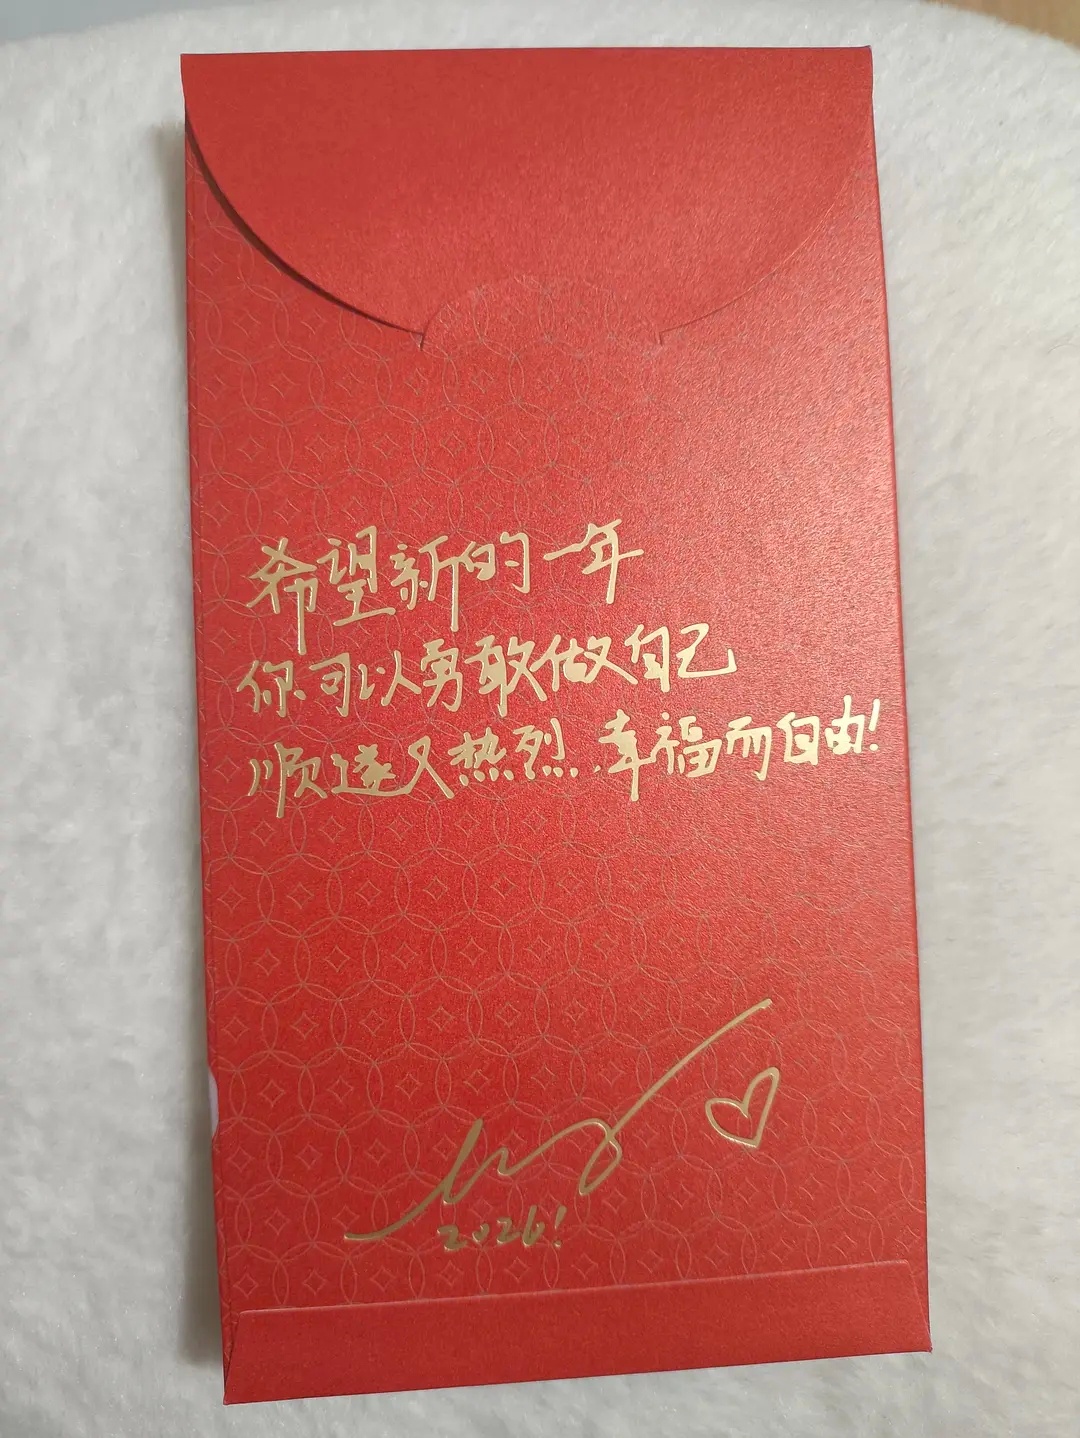 希望新的一年
你可以勇敢做自己
顺遂又热烈.幸福而自由!
2026!